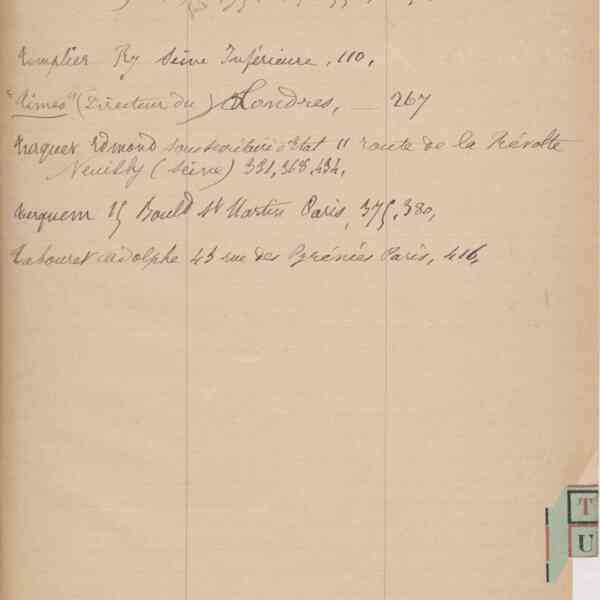 Templier Ry Seine Inférieure, 110,
"Times" (Directeur du) Londres, — 267
Turquet Edmond sous secrétaire d'Etat 11 route de la Révolte
Neuilly (Seine) 331, 368, 434,
Terquem 15 Bould St Martin Paris, 375, 380,
Tabouret Adolphe 43 rue des Pyrénées Paris, 416,
T
U